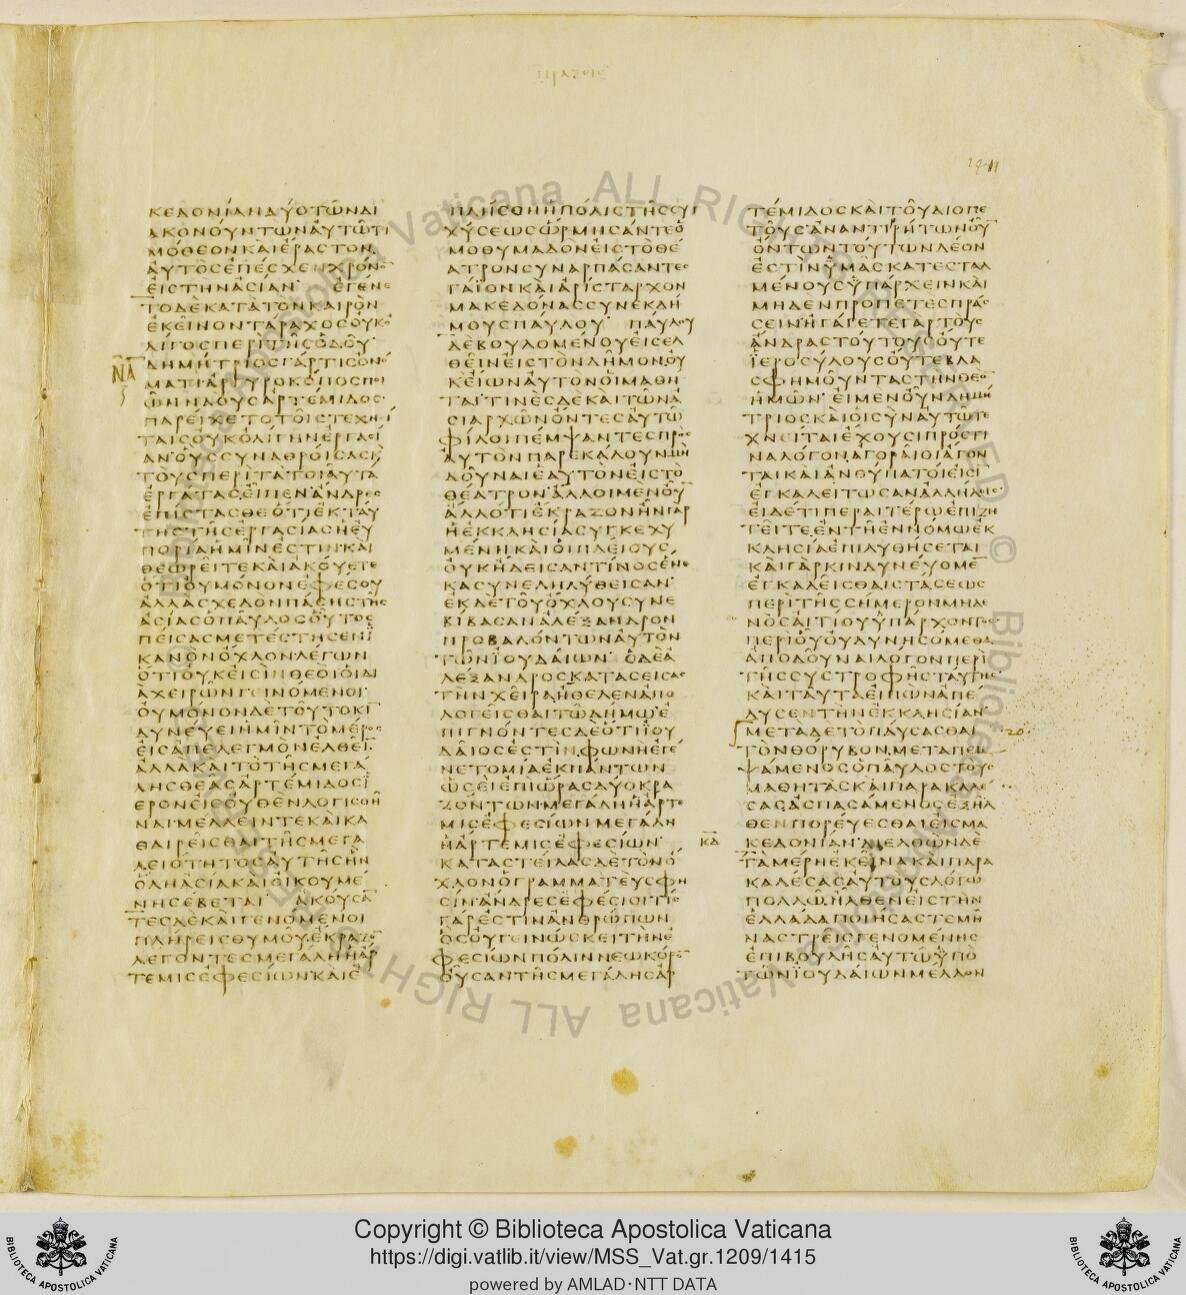 ΠΡΑΞΕΙΣ
1411
ΚΕΔΟΝΙΑΝΔΥΟΤΩΝΔΙ
ΑΚΟΝΟΥΝΤΩΝΑΥΤΩΤΙ
ΜΟΘΕΟΝΚΑΙΕΡΑΣΤΟΝ
ΑΥΤΟΣΕΠΕΣΧΕΝΧΡΟΝΟ
ΕΙΣΤΗΝΑΣΙΑΝ ΕΓΕΝΕ
ΤΟΔΕΚΑΤΑΤΟΝΚΑΙΡΟΝ
ΕΚΕΙΝΟΝΤΑΡΑΧΟΣΟΥΚΟ
ΛΙΓΟΣΠΕΡΙΤΗΣΟΔΟΥ
ΔΗΜΗΤΡΙΟΣΓΑΡΤΙΣΟΝΟ
ΝΑ
ΜΑΤΙΑΡΓΥΡΟΚΟΠΟΣΠΟΙ
ΩΝΝΑΟΥΣΑΡΤΕΜΙΔΟΣ
ΠΑΡΕΙΧΕΤΟΤΟΙΣΤΕΧΝΙ
ΤΑΙΣΟΥΚΟΛΙΓΗΝΕΡΓΑΣΙ
ΑΝΟΥΣΣΥΝΑΘΡΟΙΣΑΣΚΑΙ
ΤΟΥΣΠΕΡΙΤΑΤΟΙΑΥΤΑ
ΕΡΓΑΤΑΣΕΙΠΕΝΑΝΔΡΕΣ
ΕΠΙΣΤΑΣΘΕΟΤΙΕΚΤΑΥ
ΤΗΣΤΗΣΕΡΓΑΣΙΑΣΗΕΥ
ΠΟΡΙΑΗΜΙΝΕΣΤΙΝΚΑΙ
ΘΕΩΡΕΙΤΕΚΑΙΑΚΟΥΕΤΕ
ΟΤΙΟΥΜΟΝΟΝΕΦΕΣΟΥ
ΑΛΛΑΣΧΕΔΟΝΠΑΣΗΣΤΗΣ
ΑΣΙΑΣΟΠΑΥΛΟΣΟΥΤΟΣ
ΠΕΙΣΑΣΜΕΤΕΣΤΗΣΕΝΙ
ΚΑΝΟΝΟΧΛΟΝΛΕΓΩΝ
ΟΤΙΟΥΚΕΙΣΙΝΘΕΟΙΟΙΔΙ
ΑΧΕΙΡΩΝΓΕΙΝΟΜΕΝΟΙ
ΟΥΜΟΝΟΝΔΕΤΟΥΤΟΚΙ
ΔΥΝΕΥΕΙΗΜΙΝΤΟΜΕΡΟΣ
ΕΙΣΑΠΕΛΕΓΜΟΝΕΛΘΕΙ
ΑΛΛΑΚΑΙΤΟΤΗΣΜΕΓΑ
ΛΗΣΘΕΑΣΑΡΤΕΜΙΔΟΣΙ
ΕΡΟΝΕΙΣΟΥΘΕΝΛΟΓΙΣΘΗ
ΝΑΙΜΕΛΛΕΙΝΤΕΚΑΙΚΑ
ΘΑΙΡΕΙΣΘΑΙΤΗΣΜΕΓΑ
ΛΕΙΟΤΗΤΟΣΑΥΤΗΣΗΝ
ΟΛΗΑΣΙΑΚΑΙΟΙΚΟΥΜΕ
ΝΗΣΕΒΕΤΑΙ ΑΚΟΥΣΑ
ΤΕΣΔΕΚΑΙΓΕΝΟΜΕΝΟΙ
ΠΛΗΡΕΙΣΘΥΜΟΥΕΚΡΑΖΟ
ΛΕΓΟΝΤΕΣΜΕΓΑΛΗΗΑΡ
ΤΕΜΙΣΕΦΕΣΙΩΝΚΑΙΕ
ΠΛΗΣΘΗΗΠΟΛΙΣΤΗΣΣΥΓ
ΧΥΣΕΩΣΩΡΜΗΣΑΝΤΕΟ
ΜΟΘΥΜΑΔΟΝΕΙΣΤΟΘΕ
ΑΤΡΟΝΣΥΝΑΡΠΑΣΑΝΤΕΣ
ΓΑΙΟΝΚΑΙΑΡΙΣΤΑΡΧΟΝ
ΜΑΚΕΔΟΝΑΣΣΥΝΕΚΔΗ
ΜΟΥΣΠΑΥΛΟΥ ΠΑΥΛΟΥ
ΔΕΒΟΥΛΟΜΕΝΟΥΕΙΣΕΛ
ΘΕΙΝΕΙΣΤΟΝΔΗΜΟΝΟΥ
ΚΕΙΩΝΑΥΤΟΝΟΙΜΑΘΗ
ΤΑΙΤΙΝΕΣΔΕΚΑΙΤΩΝΑ
ΣΙΑΡΧΩΝΟΝΤΕΣΑΥΤΩ
ΦΙΛΟΙΠΕΜΨΑΝΤΕΣΠΡΟΣ
ΑΥΤΟΝΠΑΡΕΚΑΛΟΥΝΜΗ
ΔΟΥΝΑΙΕΑΥΤΟΝΕΙΣΤΟ
ΘΕΑΤΡΟΝΑΛΛΟΙΜΕΝΟΥ
ΑΛΛΟΤΙΕΚΡΑΖΟΝΗΝΓΑΡ
ΗΕΚΚΛΗΣΙΑΣΥΓΚΕΧΥ
ΜΕΝΗΚΑΙΟΙΠΛΕΙΟΥΣ
ΟΥΚΗΔΕΙΣΑΝΤΙΝΟΣΕΝΕ
ΚΑΣΥΝΕΛΗΛΥΘΕΙΣΑΝ
ΕΚΔΕΤΟΥΟΧΛΟΥΣΥΝΕ
ΒΙΒΑΣΑΝΑΛΕΞΑΝΔΡΟΝ
ΠΡΟΒΑΛΟΝΤΩΝΑΥΤΟΝ
ΤΩΝΙΟΥΔΑΙΩΝ ΟΔΕΑ
ΛΕΞΑΝΔΡΟΣΚΑΤΑΣΕΙΣΑΣ
ΤΗΝΧΕΙΡΑΗΘΕΛΕΝΑΠΟ
ΛΟΓΕΙΣΘΑΙΤΩΔΗΜΩΕ
ΠΙΓΝΟΝΤΕΣΔΕΟΤΙΙΟΥ
ΔΑΙΟΣΕΣΤΙΝΦΩΝΗΕΓΕ
ΝΕΤΟΜΙΑΕΚΠΑΝΤΩΝ
ΩΣΕΙΕΠΙΩΡΑΣΔΥΟΚΡΑ
ΖΟΝΤΩΝΜΕΓΑΛΗΗΑΡΤΕ
ΜΙΣΕΦΕΣΙΩΝΜΕΓΑΛΗ
ΗΑΡΤΕΜΙΣΕΦΕΣΙΩΝ
ΚΑΤΑΣΤΕΙΛΑΣΔΕΤΟΝΟ
ΧΛΟΝΟΓΡΑΜΜΑΤΕΥΣΦΗ
ΣΙΝΑΝΔΡΕΣΕΦΕΣΙΟΙΤΙΣ
ΓΑΡΕΣΤΙΝΑΝΘΡΩΠΩΝ
ΟΣΟΥΓΕΙΝΩΣΚΕΙΤΗΝΕ
ΦΕΣΙΩΝΠΟΛΙΝΝΕΩΚΟΡΟ
ΟΥΣΑΝΤΗΣΜΕΓΑΛΗΣΑΡ
ΤΕΜΙΔΟΣΚΑΙΤΟΥΔΙΟΠΕ
ΤΟΥΣΑΝΑΝΤΙΡΗΤΩΝΟΥ
ΟΝΤΩΝΤΟΥΤΩΝΔΕΟΝ
ΕΣΤΙΝΥΜΑΣΚΑΤΕΣΤΑΛ
ΜΕΝΟΥΣΥΠΑΡΧΕΙΝΚΑΙ
ΜΗΔΕΝΠΡΟΠΕΤΕΣΠΡΑΣ
ΣΕΙΝΗΓΑΓΕΤΕΓΑΡΤΟΥΣ
ΑΝΔΡΑΣΤΟΥΤΟΥΣΟΥΤΕ
ΙΕΡΟΣΥΛΟΥΣΟΥΤΕΒΛΑ
ΣΦΗΜΟΥΝΤΑΣΤΗΝΘΕΟ
ΗΜΩΝΕΙΜΕΝΟΥΝΔΗΜΗ
ΤΡΙΟΣΚΑΙΟΙΣΥΝΑΥΤΩΤΕ
ΧΝΕΙΤΑΙΕΧΟΥΣΙΠΡΟΣΤΙ
ΝΑΛΟΓΟΝΑΓΟΡΑΙΟΙΑΓΟΝ
ΤΑΙΚΑΙΑΝΘΥΠΑΤΟΙΕΙΣΙ
ΕΓΚΑΛΕΙΤΩΣΑΝΑΛΛΗΛΟΙΣ
ΕΙΔΕΤΙΠΕΡΑΙΤΕΡΩΕΠΙΖΗ
ΤΕΙΤΕΕΝΤΗΕΝΝΟΜΩΕΚ
ΚΛΗΣΙΑΕΠΙΛΥΘΗΣΕΤΑΙ
ΚΑΙΓΑΡΚΙΝΔΥΝΕΥΟΜΕ
ΕΓΚΑΛΕΙΣΘΑΙΣΤΑΣΕΩΣ
ΠΕΡΙΤΗΣΣΗΜΕΡΟΝΜΗΔΕ
ΝΟΣΑΙΤΙΟΥΥΠΑΡΧΟΝΤΟΣ
ΠΕΡΙΟΥΟΥΔΥΝΗΣΟΜΕΘΑ
ΑΠΟΔΟΥΝΑΙΛΟΓΟΝΠΕΡΙ
ΤΗΣΣΥΣΤΡΟΦΗΣΤΑΥΤΗΣ
ΚΑΙΤΑΥΤΑΕΙΠΩΝΑΠΕ
ΛΥΣΕΝΤΗΝΕΚΚΛΗΣΙΑΝ
ΜΕΤΑΔΕΤΟΠΑΥΣΑΣΘΑΙ
20
ΤΟΝΘΟΡΥΒΟΝΜΕΤΑΠΕΜ
ΨΑΜΕΝΟΣΟΠΑΥΛΟΣΤΟΥΣ
ΜΑΘΗΤΑΣΚΑΙΠΑΡΑΚΑΛΕ
ΣΑΣΑΣΠΑΣΑΜΕΝΟΣΕΞΗΛ
ΘΕΝΠΟΡΕΥΕΣΘΑΙΕΙΣΜΑ
ΚΑ
ΚΕΔΟΝΙΑΝΔΙΕΛΘΩΝΔΕ
ΤΑΜΕΡΗΕΚΕΙΝΑΚΑΙΠΑΡΑ
ΚΑΛΕΣΑΣΑΥΤΟΥΣΛΟΓΩ
ΠΟΛΛΩΗΛΘΕΝΕΙΣΤΗΝ
ΕΛΛΑΔΑΠΟΙΗΣΑΣΤΕΜΗ
ΝΑΣΤΡΕΙΣΓΕΝΟΜΕΝΗΣ
ΕΠΙΒΟΥΛΗΣΑΥΤΩΥΠΟ
ΤΩΝΙΟΥΔΑΙΩΝΜΕΛΛΟΝ
Copyright © Biblioteca Apostolica Vaticana
https://digi.vatlib.it/view/MSS_Vat.gr.1209/1415
powered by AMLAD·NTT DATA
BIBLIOTECA APOSTOLICA VATICANA
BIBLIOTECA APOSTOLICA VATICANA